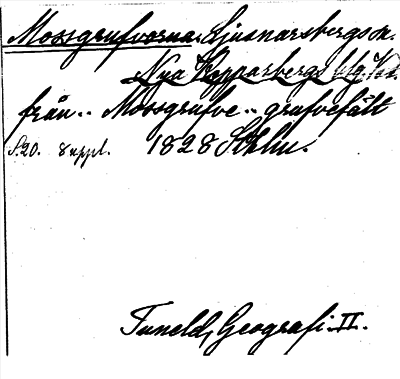 Mossgrufvorna Ljusnarsbergs sn.
Nya Kopparbergs blg. Vstm.
från.. Mossgrufve.. grufvefält
S.20. 8 uppl. 1828 Sthlm.
Tuneld, Geografi. II.